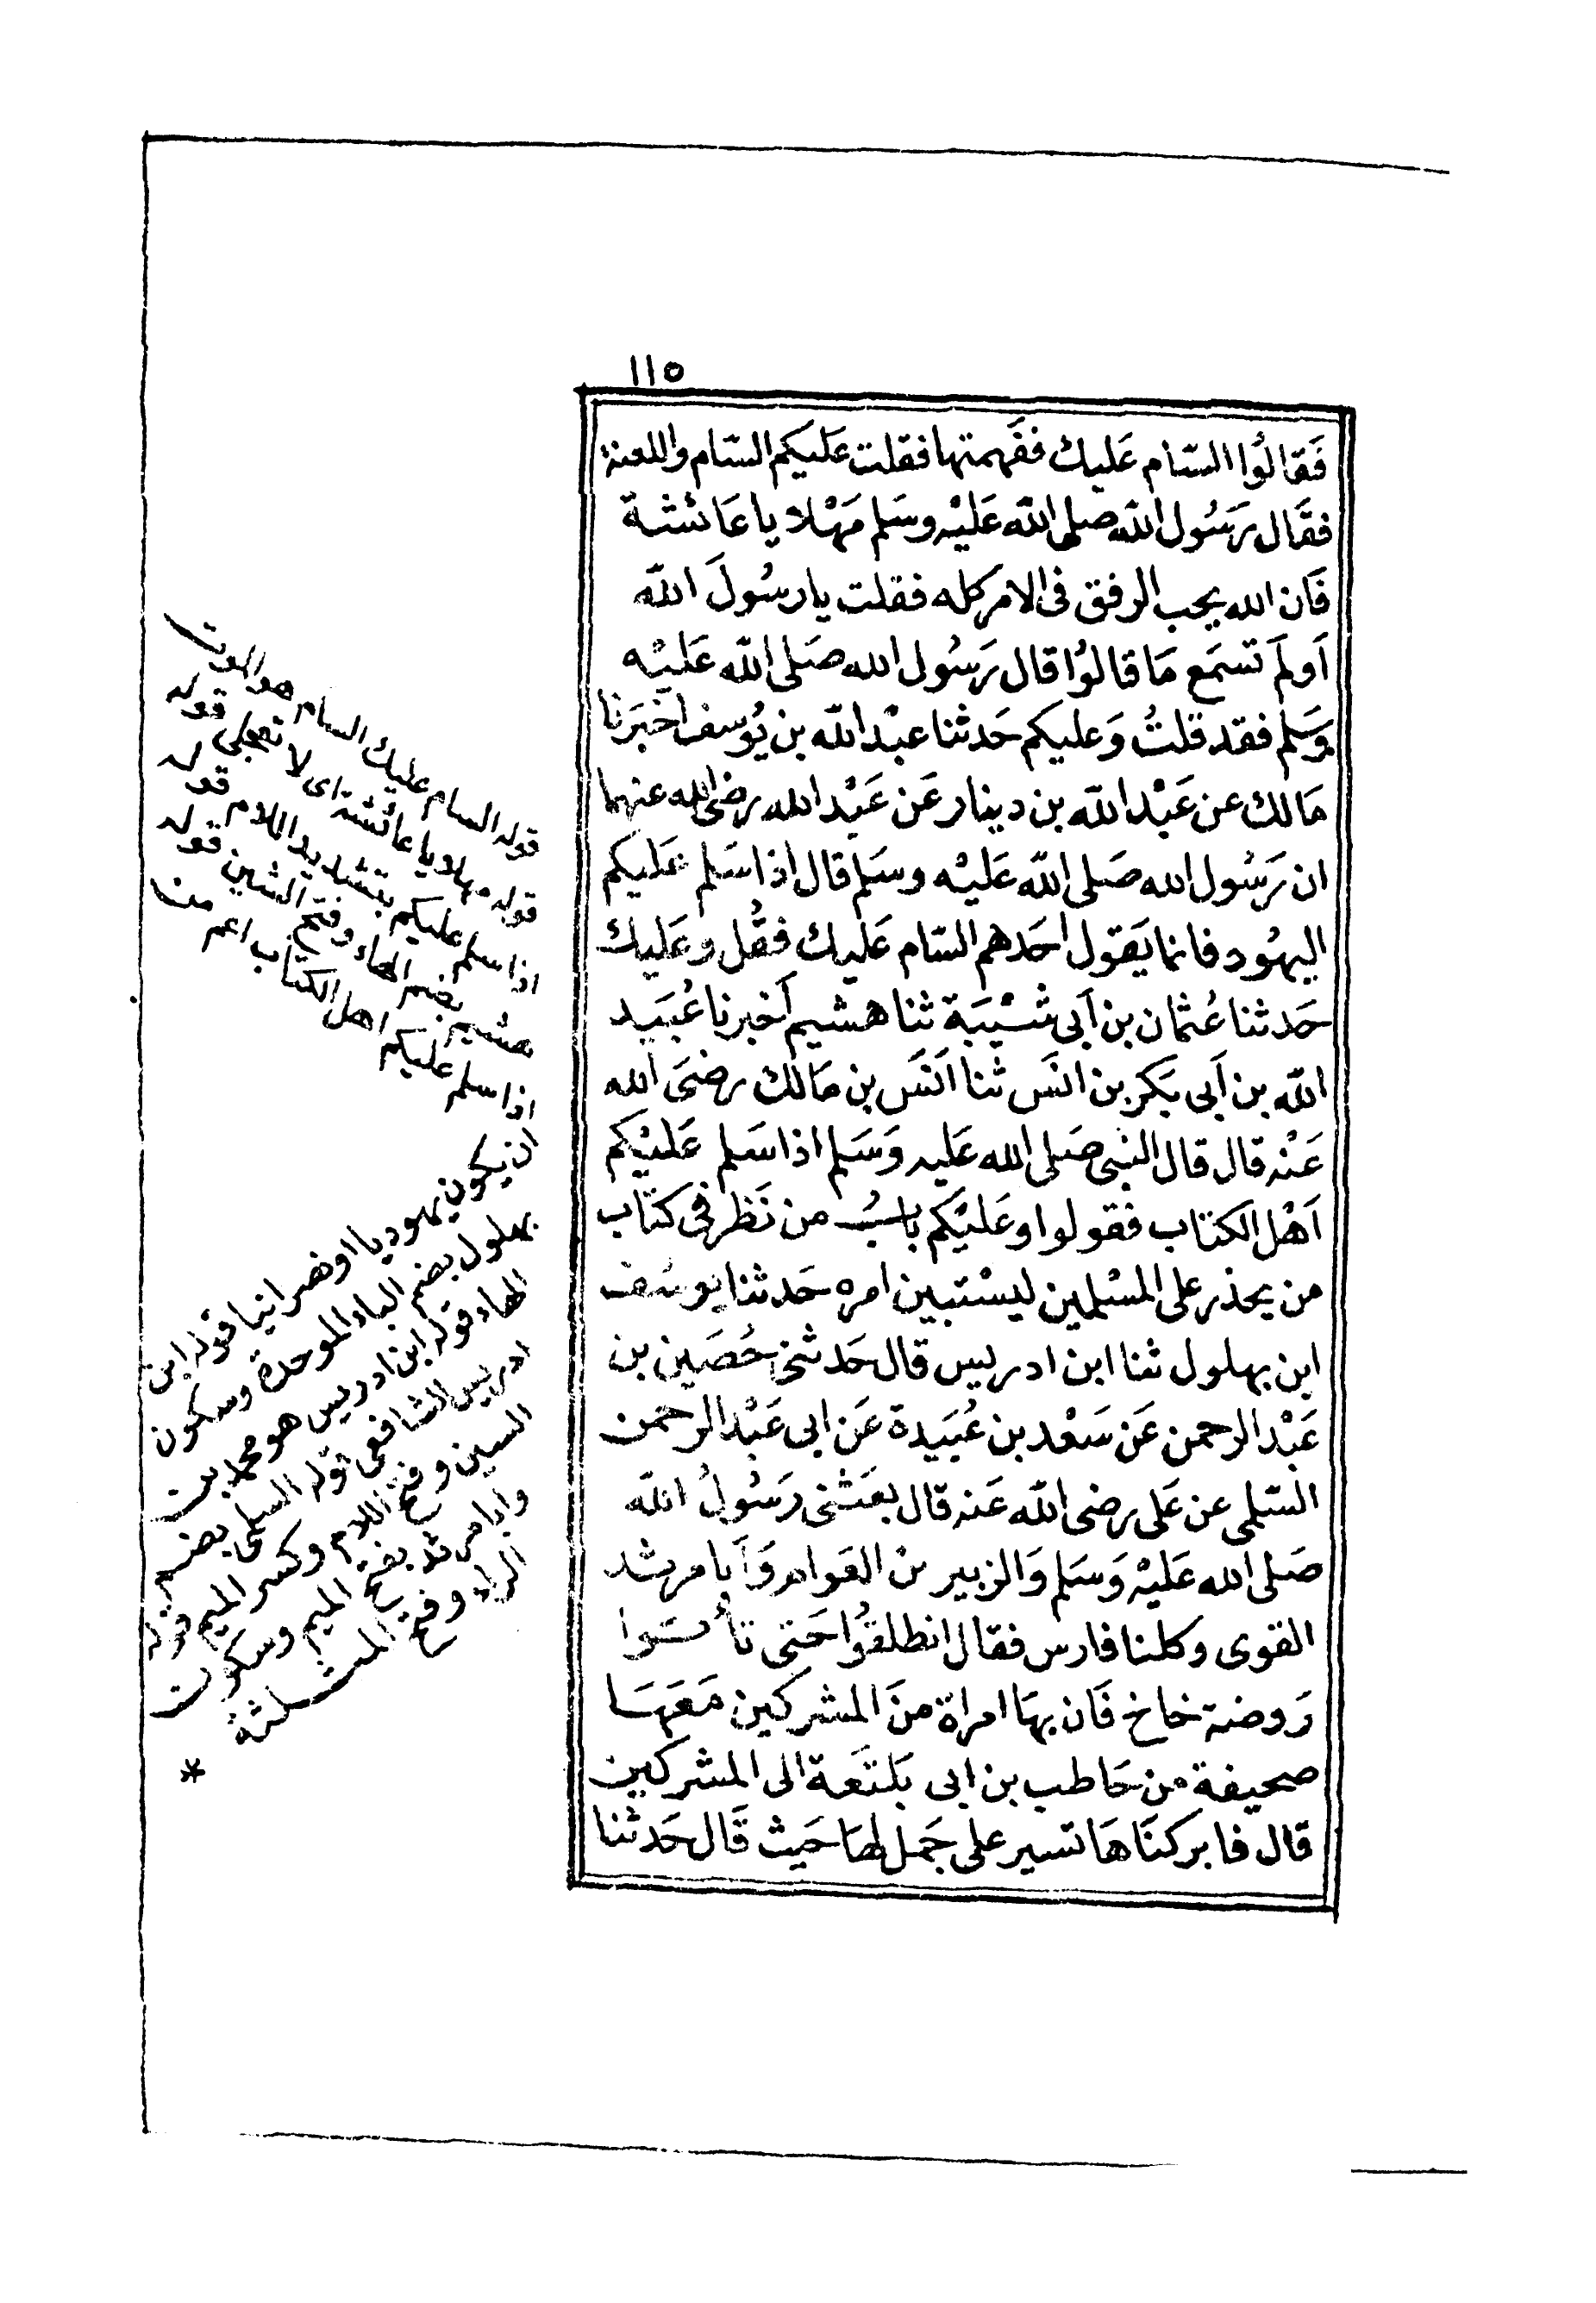 ١١٥
فَقالُوا السّام عَليك ففَهمتها فقلت عَليكم السّام واللعنة
فقَال رَسُول الله صلى الله عَليْه وسَلم مَهْلا يا عَائشة
فَان الله يحب الرفق فى الامر كله فقلت يا رسُولَ الله
اَولَم تسمَع مَا قالوُا قال رَسُول الله صَلى الله عَليْه
وسَلم فقد قلتُ وَعليكم حَدثنا عبْد الله بن يُوسف اخبَرنا
مَالك عن عَبْد الله بن دينار عَن عَبْد الله رضى الله عنهما
ان رَسُول الله صَلى الله عَليْه وسَلم قال اذا سَلم عَليكم
اليهُود فانما يَقول احَدهم السّام عَليك فقُل وعَليك
حَدثنا عُثمان بن اَبى شيْبَة ثنا هشيم اَخبرنا عُبَيد
الله بن اَبى بَكر بن انسَ ثنا اَنسَ بن مَالك رضىَ الله
عَنْه قال قال النبى صَلى الله عَليه وَسَلم اذا سَلم عَليْكم
اَهْل الكتاب فقولوا وعَليْكم بابُ من نَظر فى كتَاب
من يحذر على المسْلمين ليسْتبين امره حَدثنا يوسُف
ابن بهلول ثنا ابن ادريس قال حَدثنى حُصَين بن
عَبْد الرحمن عَن سَعْد بن عُبَيدة عَن ابى عَبْد الرحمن
السّلمى عن عَلى رضى الله عَنه قال بعَثنى رَسُولُ الله
صَلى الله عَليْه وَسَلم وَالزبير بنْ العَوام وَاَبا مرثد
الغنوى وكلنا فارس فقال انطلقُوا حَتى تأتوا
رَوضة خاخ فَان بهَا امراة منَ المشركين مَعَهَا
صحيفة من حَاطب بن ابى بَلتَعة الى المشركين
قال فابركنَاهَا تسير على جَمل لهَا حَيث قَال حَدثنا
قوله السام عليك السام هو الموت
قوله مهلا يا عائشة اى لا تعجلى قوله
اذا سلم عليكم بتشديد اللام قوله
هشيم بضم الهاء وفتح الشين قوله
اذا سلم عليكم اهل الكتاب اعم من
ان يكون يهوديا او نصرانيا قوله ابن
بهلول بضم الباء الموحدة وسكون
الهاء قوله ابن ادريس هو محمد بن
ادريس الشافعى قوله السلمى بضم
السين وفتح اللام وكسر الميم قوله
وابا مرثد بفتح الميم وسكون
الراء وفتح المثلثة
*